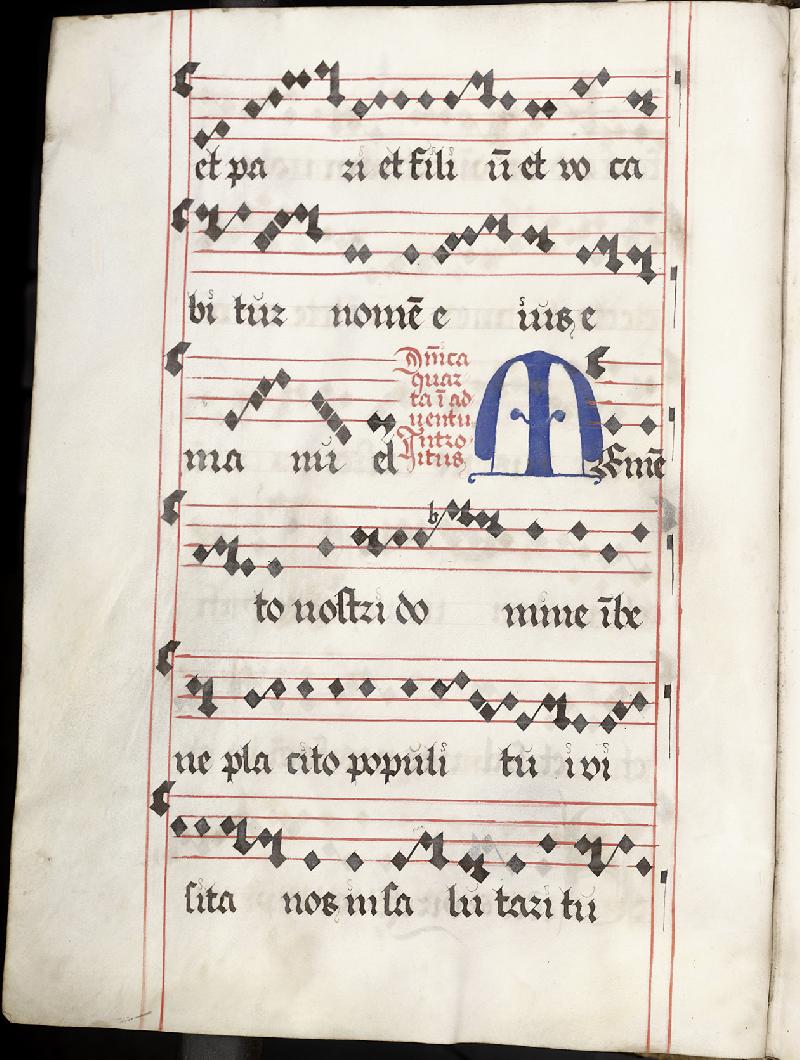 et pa ri et fili ū et vo ca
bi tur nomē e ius e
ma nu el
Dn̄ica
quar
ta ī ad
uentu
Intro
itus
Memē
to nostri do mine ībe
ne pla cito populi tu i vi
sita nos in sa lu tari tu